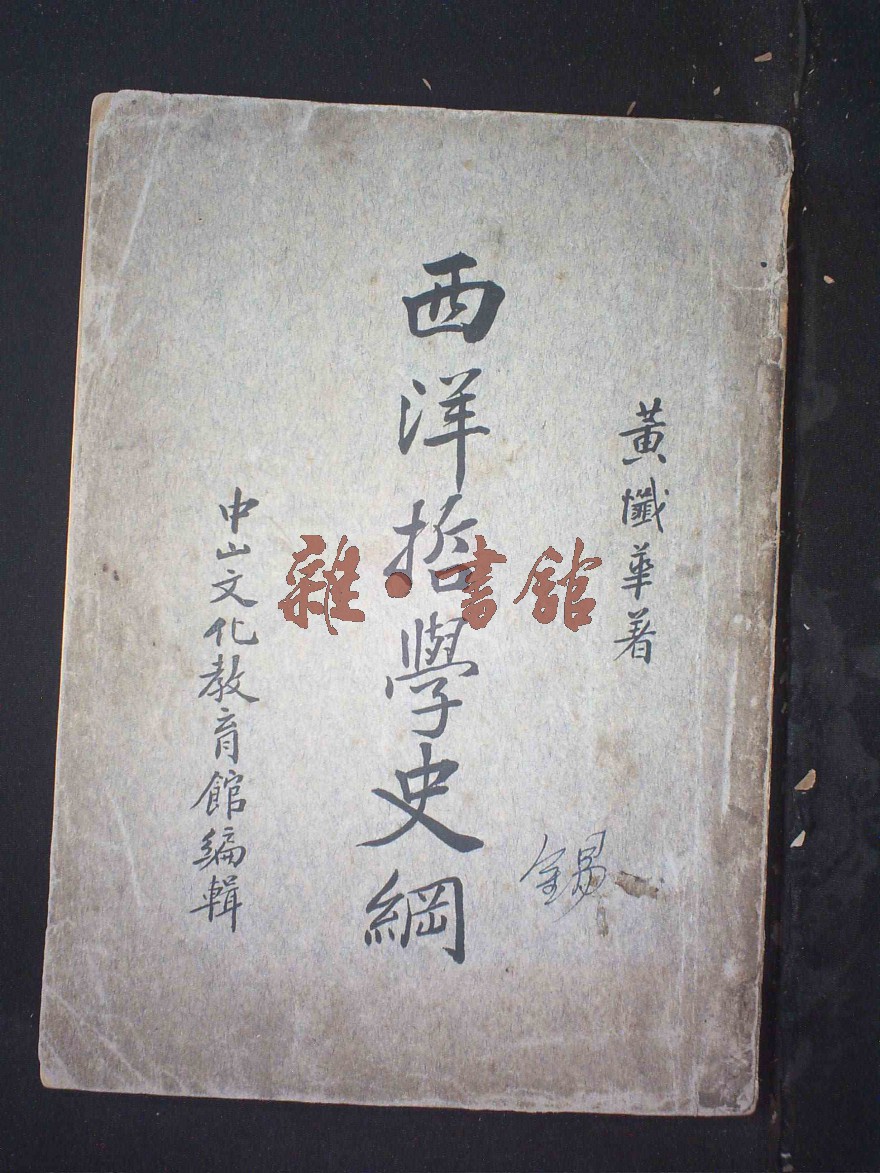 黃懺華著
西洋哲學史綱
中山文化教育館編輯
錫
雜·書館